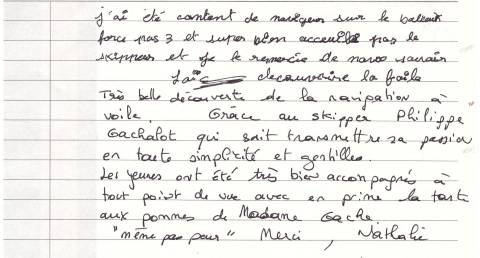 j'ai été content de naviguer sur le bateau
force pas 3 et super bien accueil pas le
skippeur et je le remercie De nous savair
Loïc decouvrire la foile
Très belle découverte de la navigation à
voile. Grâce au skipper Philippe
Gachalot qui sait transmettre sa passion
en toute simplicité et gentilles.
Les jeunes ont été très bien accompagnés à
tout point de vue avec en prime la tarte
aux pommes de Madame Gache.
"même pas peur" Merci, Nathalie